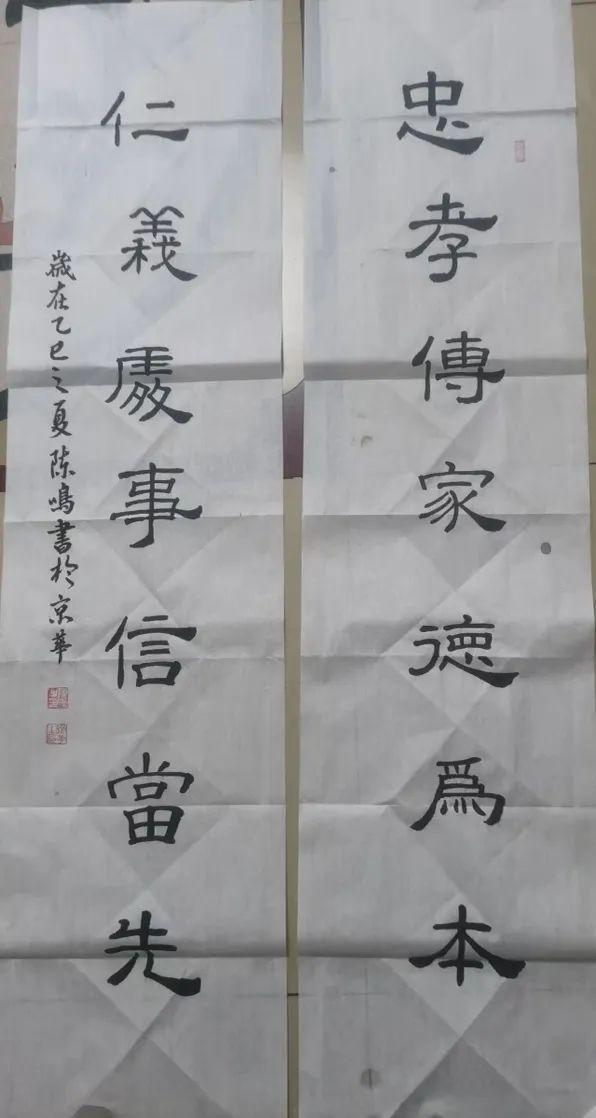 忠孝傳家德為本
仁義處事信當先
歲在乙巳之夏陈鳴書於京華